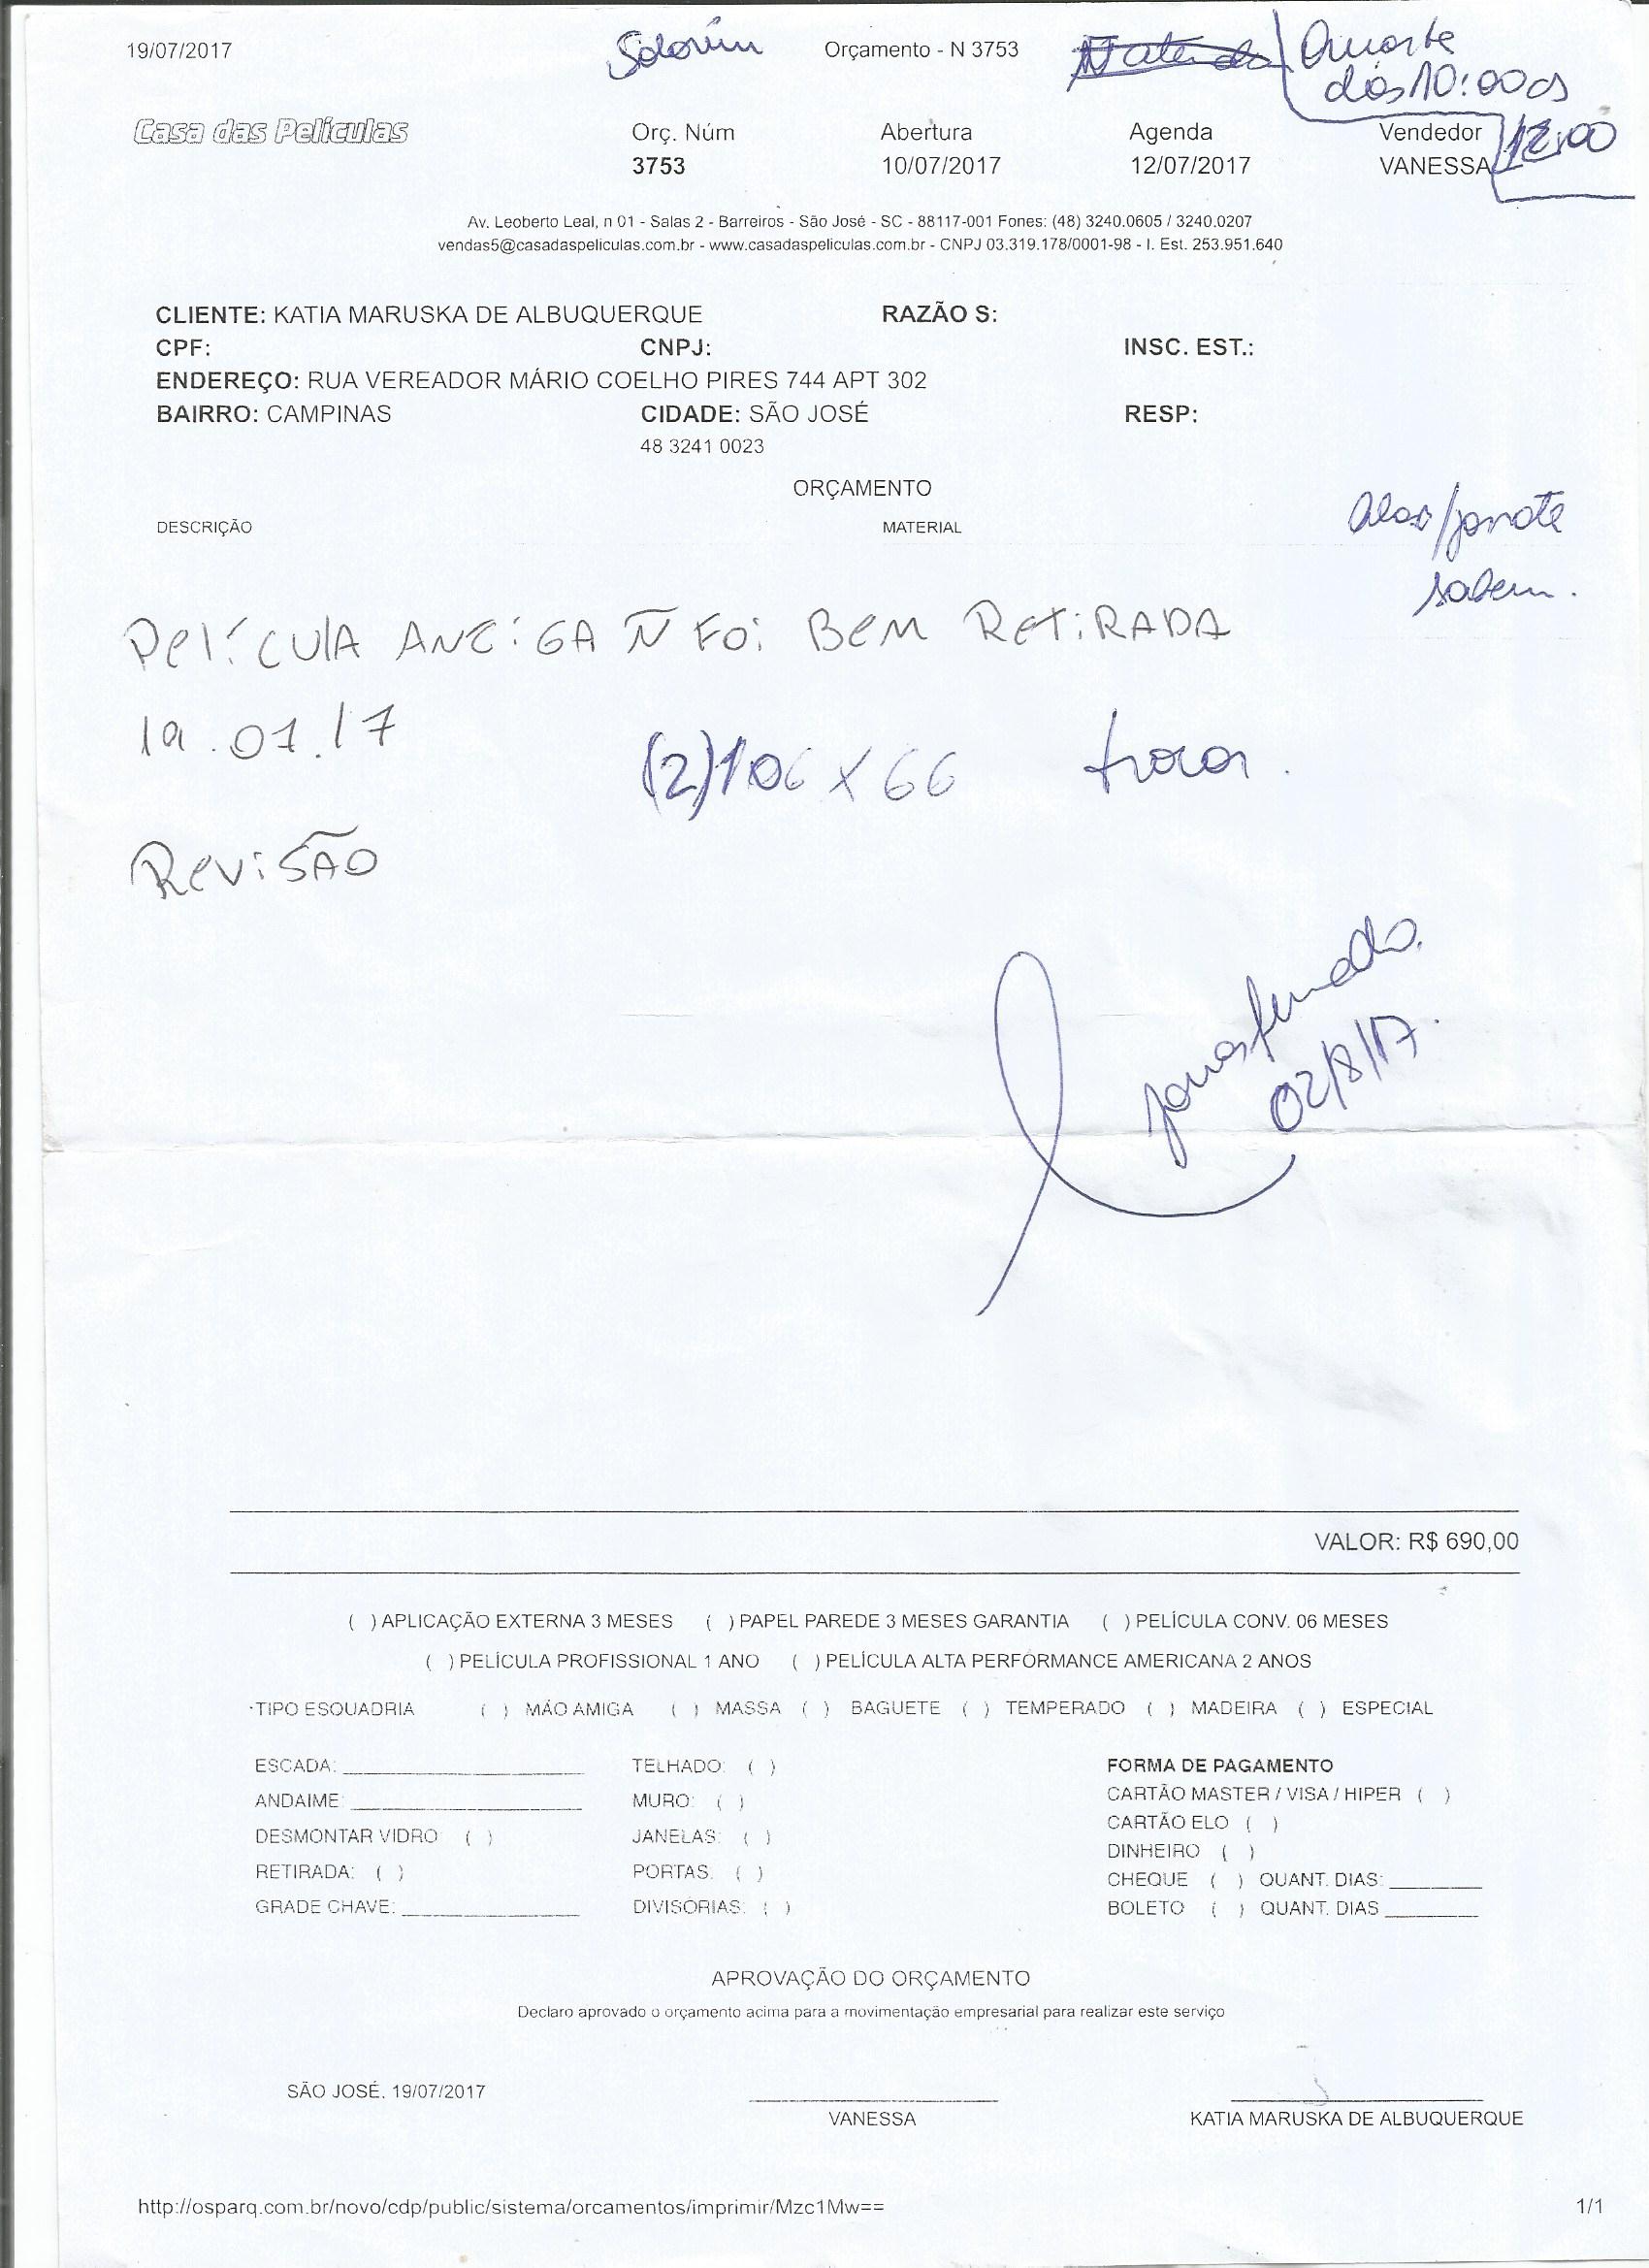 19/07/2017 Orçamento - N 3753 Quarta
dás 10:00 as
12:00
Casa das Películas
Orç. Núm Abertura Agenda Vendedor
3753 10/07/2017 12/07/2017 VANESSA
Av. Leoberto Leal, n 01 - Salas 2 - Barreiros - São José - SC - 88117-001 Fones: (48) 3240.0605 / 3240.0207
vendas5@casadaspeliculas.com.br - www.casadaspeliculas.com.br - CNPJ 03.319.178/0001-98 - I. Est. 253.951.640
CLIENTE: KATIA MARUSKA DE ALBUQUERQUE RAZÃO S:
CPF: CNPJ: INSC. EST.:
ENDEREÇO: RUA VEREADOR MÁRIO COELHO PIRES 744 APT 302
BAIRRO: CAMPINAS CIDADE: SÃO JOSÉ RESP:
48 3241 0023
ORÇAMENTO
DESCRIÇÃO MATERIAL
sabem.
PELÍCULA ANTIGA Ñ FOI BEM RETIRADA
19.07.17
(2) 106 x 66 trocar.
REVISÃO
02/8/17.
VALOR: R$ 690,00
( ) APLICAÇÃO EXTERNA 3 MESES ( ) PAPEL PAREDE 3 MESES GARANTIA ( ) PELÍCULA CONV. 06 MESES
( ) PELÍCULA PROFISSIONAL 1 ANO ( ) PELÍCULA ALTA PERFORMANCE AMERICANA 2 ANOS
TIPO ESQUADRIA ( ) MÃO AMIGA ( ) MASSA ( ) BAGUETE ( ) TEMPERADO ( ) MADEIRA ( ) ESPECIAL
ESCADA: TELHADO: ( ) FORMA DE PAGAMENTO
ANDAIME: MURO: ( ) CARTÃO MASTER / VISA / HIPER ( )
DESMONTAR VIDRO ( ) JANELAS: ( ) CARTÃO ELO ( )
RETIRADA: ( ) PORTAS: ( ) DINHEIRO ( )
GRADE CHAVE: DIVISÓRIAS: ( ) CHEQUE ( ) QUANT. DIAS:
BOLETO ( ) QUANT. DIAS
APROVAÇÃO DO ORÇAMENTO
Declaro aprovado o orçamento acima para a movimentação empresarial para realizar este serviço
SÃO JOSÉ, 19/07/2017
VANESSA KATIA MARUSKA DE ALBUQUERQUE
http://osparq.com.br/novo/cdp/public/sistema/orcamentos/imprimir/Mzc1Mw== 1/1